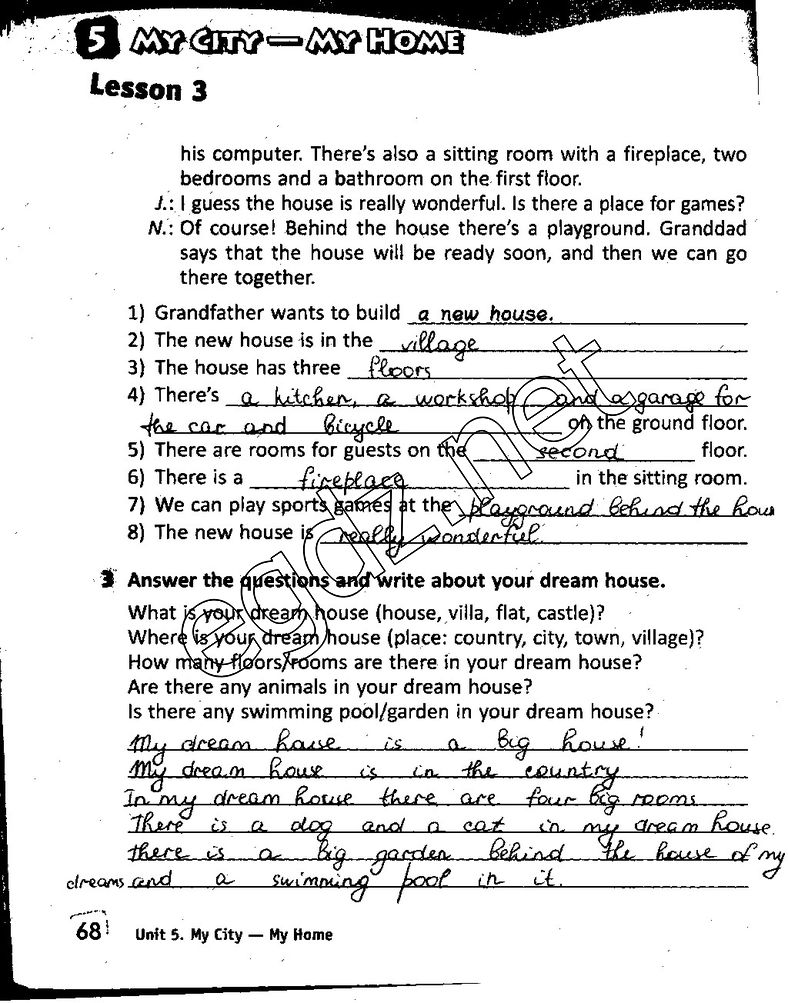 5 MY CITY — MY HOME
Lesson 3
his computer. There's also a sitting room with a fireplace, two
bedrooms and a bathroom on the first floor.
J.: I guess the house is really wonderful. Is there a place for games?
N.: Of course! Behind the house there's a playground. Granddad
says that the house will be ready soon, and then we can go
there together.
1) Grandfather wants to build a new house.
2) The new house is in the village
3) The house has three floors
4) There's a kitchen, a workshop and a garage for
the car and bicycle on the ground floor.
5) There are rooms for guests on the second floor.
6) There is a fireplace in the sitting room.
7) We can play sports games at the playground behind the hous
8) The new house is really wonderful.
3 Answer the questions and write about your dream house.
What is your dream house (house, villa, flat, castle)?
Where is your dream house (place: country, city, town, village)?
How many floors/rooms are there in your dream house?
Are there any animals in your dream house?
Is there any swimming pool/garden in your dream house?
My dream house is a big house!
My dream house is in the country
In my dream house there are four big rooms
There is a dog and a cat in my dream house.
there is a big garden behind the house of my
dreams and a swimming pool in it.
68 Unit 5. My City — My Home
egdz.net